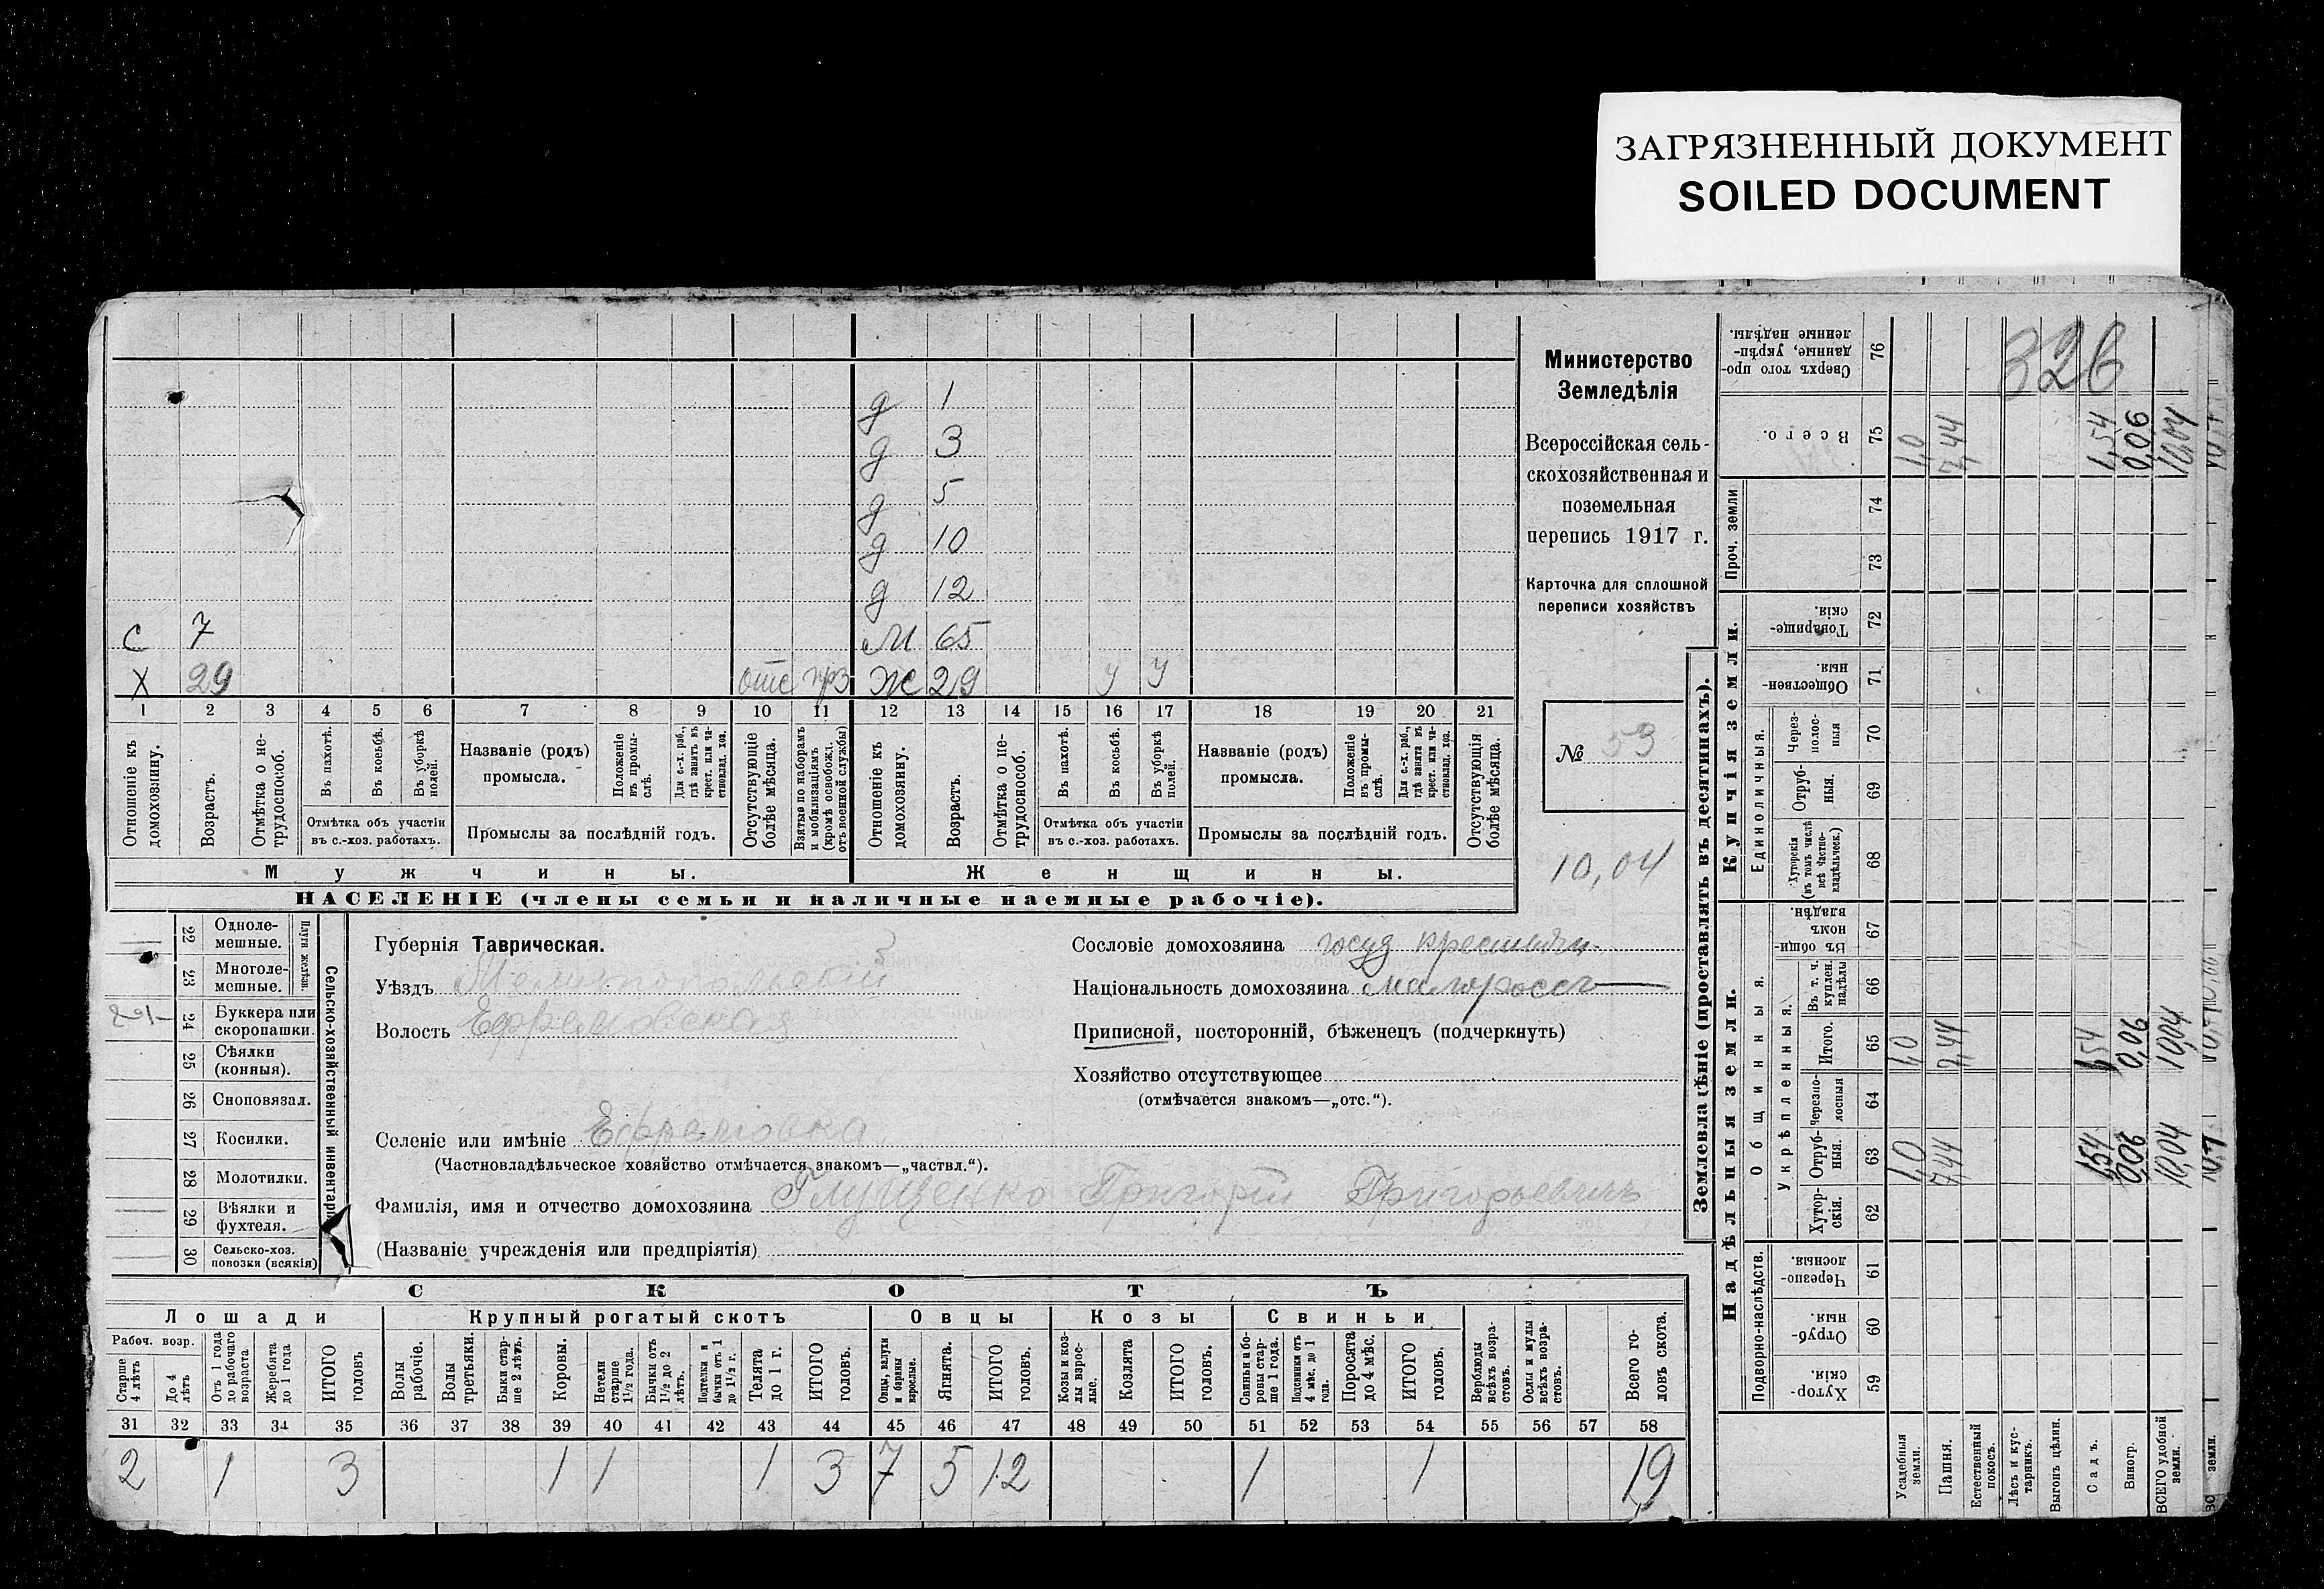 ЗАГРЯЗНЕННЫЙ ДОКУМЕНТ
SOILED DOCUMENT
326
Министерство
Земледѣлія
Всероссійская сель-
скохозяйственная и
поземельная
перепись 1917 г.
Карточка для сплошной
переписи хозяйствъ
№ 53
10,04
д 1
д 3
д 5
д 10
д 12
С 7 М 65
Х 29 отс прз Ж 29 у у
1 2 3 4 5 6 7 8 9 10 11 12 13 14 15 16 17 18 19 20 21
Отношеніе къ домохозяину.
Возрастъ.
Отмѣтка о не-трудоспособ.
Въ пахотѣ.
Въ косьбѣ.
Въ уборкѣ полей.
Отмѣтка объ участіи въ с.-хоз. работахъ.
Названіе (родъ) промысла.
Положеніе въ промы-слѣ.
Для с.-х. раб., гдѣ занятъ въ крест. или ча-стновлад. хоз.
Промыслы за послѣдній годъ.
Отсутствующіе болѣе мѣсяца.
Взятые по наборамъ и мобилизаціямъ (кромѣ освобожд. отъ военной службы)
Отношеніе къ домохозяину.
Возрастъ.
Отмѣтка о не-трудоспособ.
Въ пахотѣ.
Въ косьбѣ.
Въ уборкѣ полей.
Отмѣтка объ участіи въ с.-хоз. работахъ.
Названіе (родъ) промысла.
Положеніе въ промы-слѣ.
Для с.-х. раб., гдѣ занята въ крест. или ча-стновлад. хоз.
Промыслы за послѣдній годъ.
Отсутствующія болѣе мѣсяца.
Мужчины. Женщины.
НАСЕЛЕНІЕ (члены семьи и наличные наемные рабочіе).
22 Одноле-мешные.
23 Многоле-мешные.
Плуги желѣзн.
24 Буккера или скоропашки.
25 Сѣялки (конныя).
26 Сноповязал.
27 Косилки.
28 Молотилки.
29 Вѣялки и фухтеля.
30 Сельско-хоз. повозки (всякія)
Сельско-хозяйственный инвентарь
Губернія Таврическая.
Уѣздъ Мелитопольскій
3
Волость Ефремовская
Селеніе или имѣніе Ефремовка
(Частновладѣльческое хозяйство отмѣчается знакомъ—„частвл.“).
Фамилія, имя и отчество домохозяина Глущенко Григорій Григорьевичъ
(Названіе учрежденія или предпріятія)
Сословіе домохозяина госуд крестьян.
Національность домохозяина малоросс
Приписной, посторонній, бѣженецъ (подчеркнуть)
Хозяйство отсутствующее
(отмѣчается знакомъ—„отс.“).
СКОТЪ
Лошади Крупный рогатый скотъ Овцы Козы Свиньи
Рабоч. возр.
Старше 4 лѣтъ
До 4 лѣтъ
Отъ 1 года до рабочаго возраста
Жеребята до 1 года
ИТОГО головъ
Волы рабочіе.
Волы третьяки.
Быки стар-ше 2 лѣтъ.
Коровы.
Нетели старше 1½ года.
Бычки отъ 1½ до 2 лѣтъ.
Подтелки и бычки отъ 1 до 1½ г.
Телята до 1 г.
ИТОГО головъ.
Овцы, валухи и бараны взрослые.
Ягнята.
ИТОГО головъ.
Козы и коз-лы взрос-лые.
Козлята
ИТОГО головъ.
Свиньи и бо-ровы стар-ше 1 года.
Подсвинки отъ 4 мѣс. до 1 года.
Поросята до 4 мѣс.
ИТОГО головъ.
Верблюды всѣхъ возра-стовъ.
Ослы и мулы всѣхъ возра-стовъ.
Всего го-ловъ скота.
31 32 33 34 35 36 37 38 39 40 41 42 43 44 45 46 47 48 49 50 51 52 53 54 55 56 57 58
2 1 3 1 1 1 3 7 5 12 1 1 19
Землевладѣніе (проставлять въ десятинахъ).
Надѣльныя земли. Купчія земли. Проч. земли
Подворно-наслѣдств.
Общинныя.
Укрѣпленныя.
Единоличныя.
59 Хутор-скія.
60 Отруб-ныя.
61 Черезпо-лосныя.
62 Хутор-скія.
63 Отруб-ныя. 1,0 7,44 1,54 0,06 10,04
64 Черезпо-лосныя
65 Итого. 1,0 7,44 1,54 0,06 10,04
66 Въ т. ч. куплен. надѣлы
67 Въ общи-номъ владѣн.
68 Хуторскія (въ томъ числѣ всѣ частно-владѣльческ.)
69 Отруб-ныя.
70 Через-полос-ныя
71 Обществен-ныя.
72 Товарище-скія.
73
74
75 Всего. 1,0 7,44 1,54 0,06 10,04
76 Сверхъ того про-данные, укрѣп-ленные надѣлы.
Усадебныя земли.
Пашня.
Естественный покосъ.
Лѣсъ и кус-тарникъ.
Выгонъ цѣлин.
Садъ.
Виногр.
ВСЕГО удобной земли.
земли.